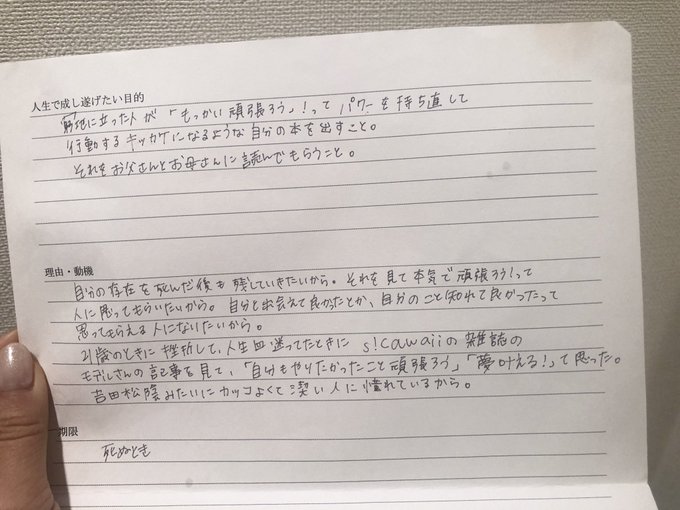 人生で成し遂げたい目的
窮地に立った人が「もっかい頑張ろう」!ってパワーを持ち直して
行動するキッカケになるような自分の本を出すこと。
それをお父さんとお母さんに読んでもらうこと。
理由・動機
自分の存在を死んだ後も残していきたいから。それを見て本気で頑張ろう!って
人に思ってもらいたいから。自分と出会えて良かったとか、自分のこと知れて良かったって
思ってもらえる人になりたいから。
21歳のときに挫折して、人生血迷ってたときにS!Cawaiiの雑誌の
モデルさんの記事を見て、「自分もやりたかったこと頑張ろう」「夢叶える!」って思った。
吉田松陰みたいにカッコよくて深い人に憧れているから。
期限
死ぬとき